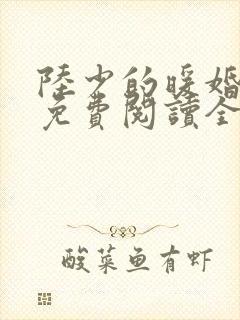 陸少的暖婚
免費閱讀全
酸菜鱼有虾